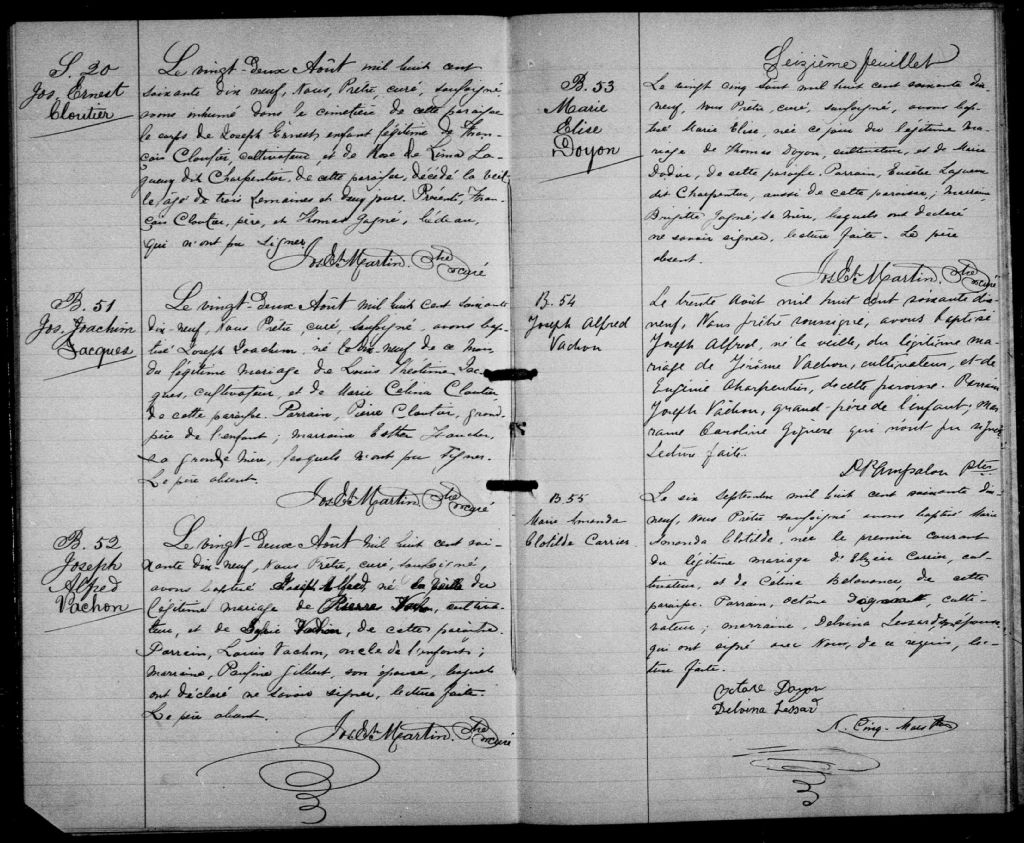 S. 20
Jos. Ernest
Cloutier
Le vingt-deux Août mil huit cent
soixante dix neuf, Nous, Prêtre, curé, soussigné,
avons inhumé dans le cimetière de cette paroisse
le corps de Joseph Ernest, enfant légitime de Fran-
çois Cloutier, cultivateur, et de Rose de Lima La-
gueux dit Charpentier, de cette paroisse, décédé la veil-
le, âgé de trois semaines et deux jours. Présents, Fran-
çois Cloutier, père, et Thomas Gagné, bedeau,
qui n'ont pu signer
Jos. Et. Martin. Ptre curé
B. 51
Jos. Joachim
Jacques
Le vingt-deux Août mil huit cent soixante
dix-neuf, Nous Prêtre, curé, soussigné, avons bap-
tisé Joseph Joachim, né le dix neuf de ce mois
du légitime mariage de Louis Jac-
ques, cultivateur, et de Marie Celina Cloutier
de cette paroisse. Parrain, Pierre Cloutier, grand-
père de l'enfant; marraine Esther
sa grande mère, lesquels n'ont pu signer.
Le père absent.
Jos. Et. Martin. Ptre curé
B. 52
Joseph
Alfred
Vachon
Le vingt-deux Août mil huit cent soi-
xante dix neuf, Nous Prêtre, curé, soussigné,
avons baptisé Joseph Alfred, né la veille du
légitime mariage de Pierre Vachon, cultiva-
teur, et de Vachon, de cette paroisse.
Parrain, Louis Vachon, oncle de l'enfant;
marraine, Pauline Gilbert, son épouse, lesquels
ont déclaré ne savoir signer, lecture faite.
Le père absent.
Jos. Et. Martin. Ptre curé
Seizième feuillet
B. 53
Marie
Elise
Doyon
Le vingt cinq Août mil huit cent soixante dix
neuf, Nous Prêtre, curé, soussigné, avons bap-
tisé Marie Elise, née ce jour du légitime ma-
riage de Thomas Doyon, cultivateur, et de Marie
Dodier, de cette paroisse. Parrain, Lagueux
dit Charpentier, aussi de cette paroisse; marraine,
Brigitte Gagné, sa mère, lesquels ont déclaré
ne savoir signer, lecture faite. Le père
absent.
Jos. Et. Martin. Ptre curé
B. 54
Joseph Alfred
Vachon
Le trente Août mil huit cent soixante dix
neuf, Nous prêtre soussigné, avons baptisé
Joseph Alfred, né la veille, du légitime ma-
riage de Jérôme Vachon, cultivateur, et de
Eugénie Charpentier, de cette paroisse. Parrain
Joseph Vachon, grand-père de l'enfant; mar-
raine Caroline Giguère qui n'ont pu signer
Lecture faite.
Ptre
B. 55
Marie Amenda
Clotilde Carrier
Le six septembre mil huit cent soixante dix
neuf, Nous Prêtre soussigné avons baptisé Marie
Amenda Clotilde, née le premier courant
du légitime mariage d'Elzéar Carrier, cul-
tivateur, et de Celina Betovance, de cette
paroisse. Parrain, Octave culti-
vateur; marraine, Delvina Lessard,
qui ont signé avec Nous, de ce requis, lec-
ture faite.
Octave Doyon
Delvina Lessard
N. Cinq-Mars Ptre